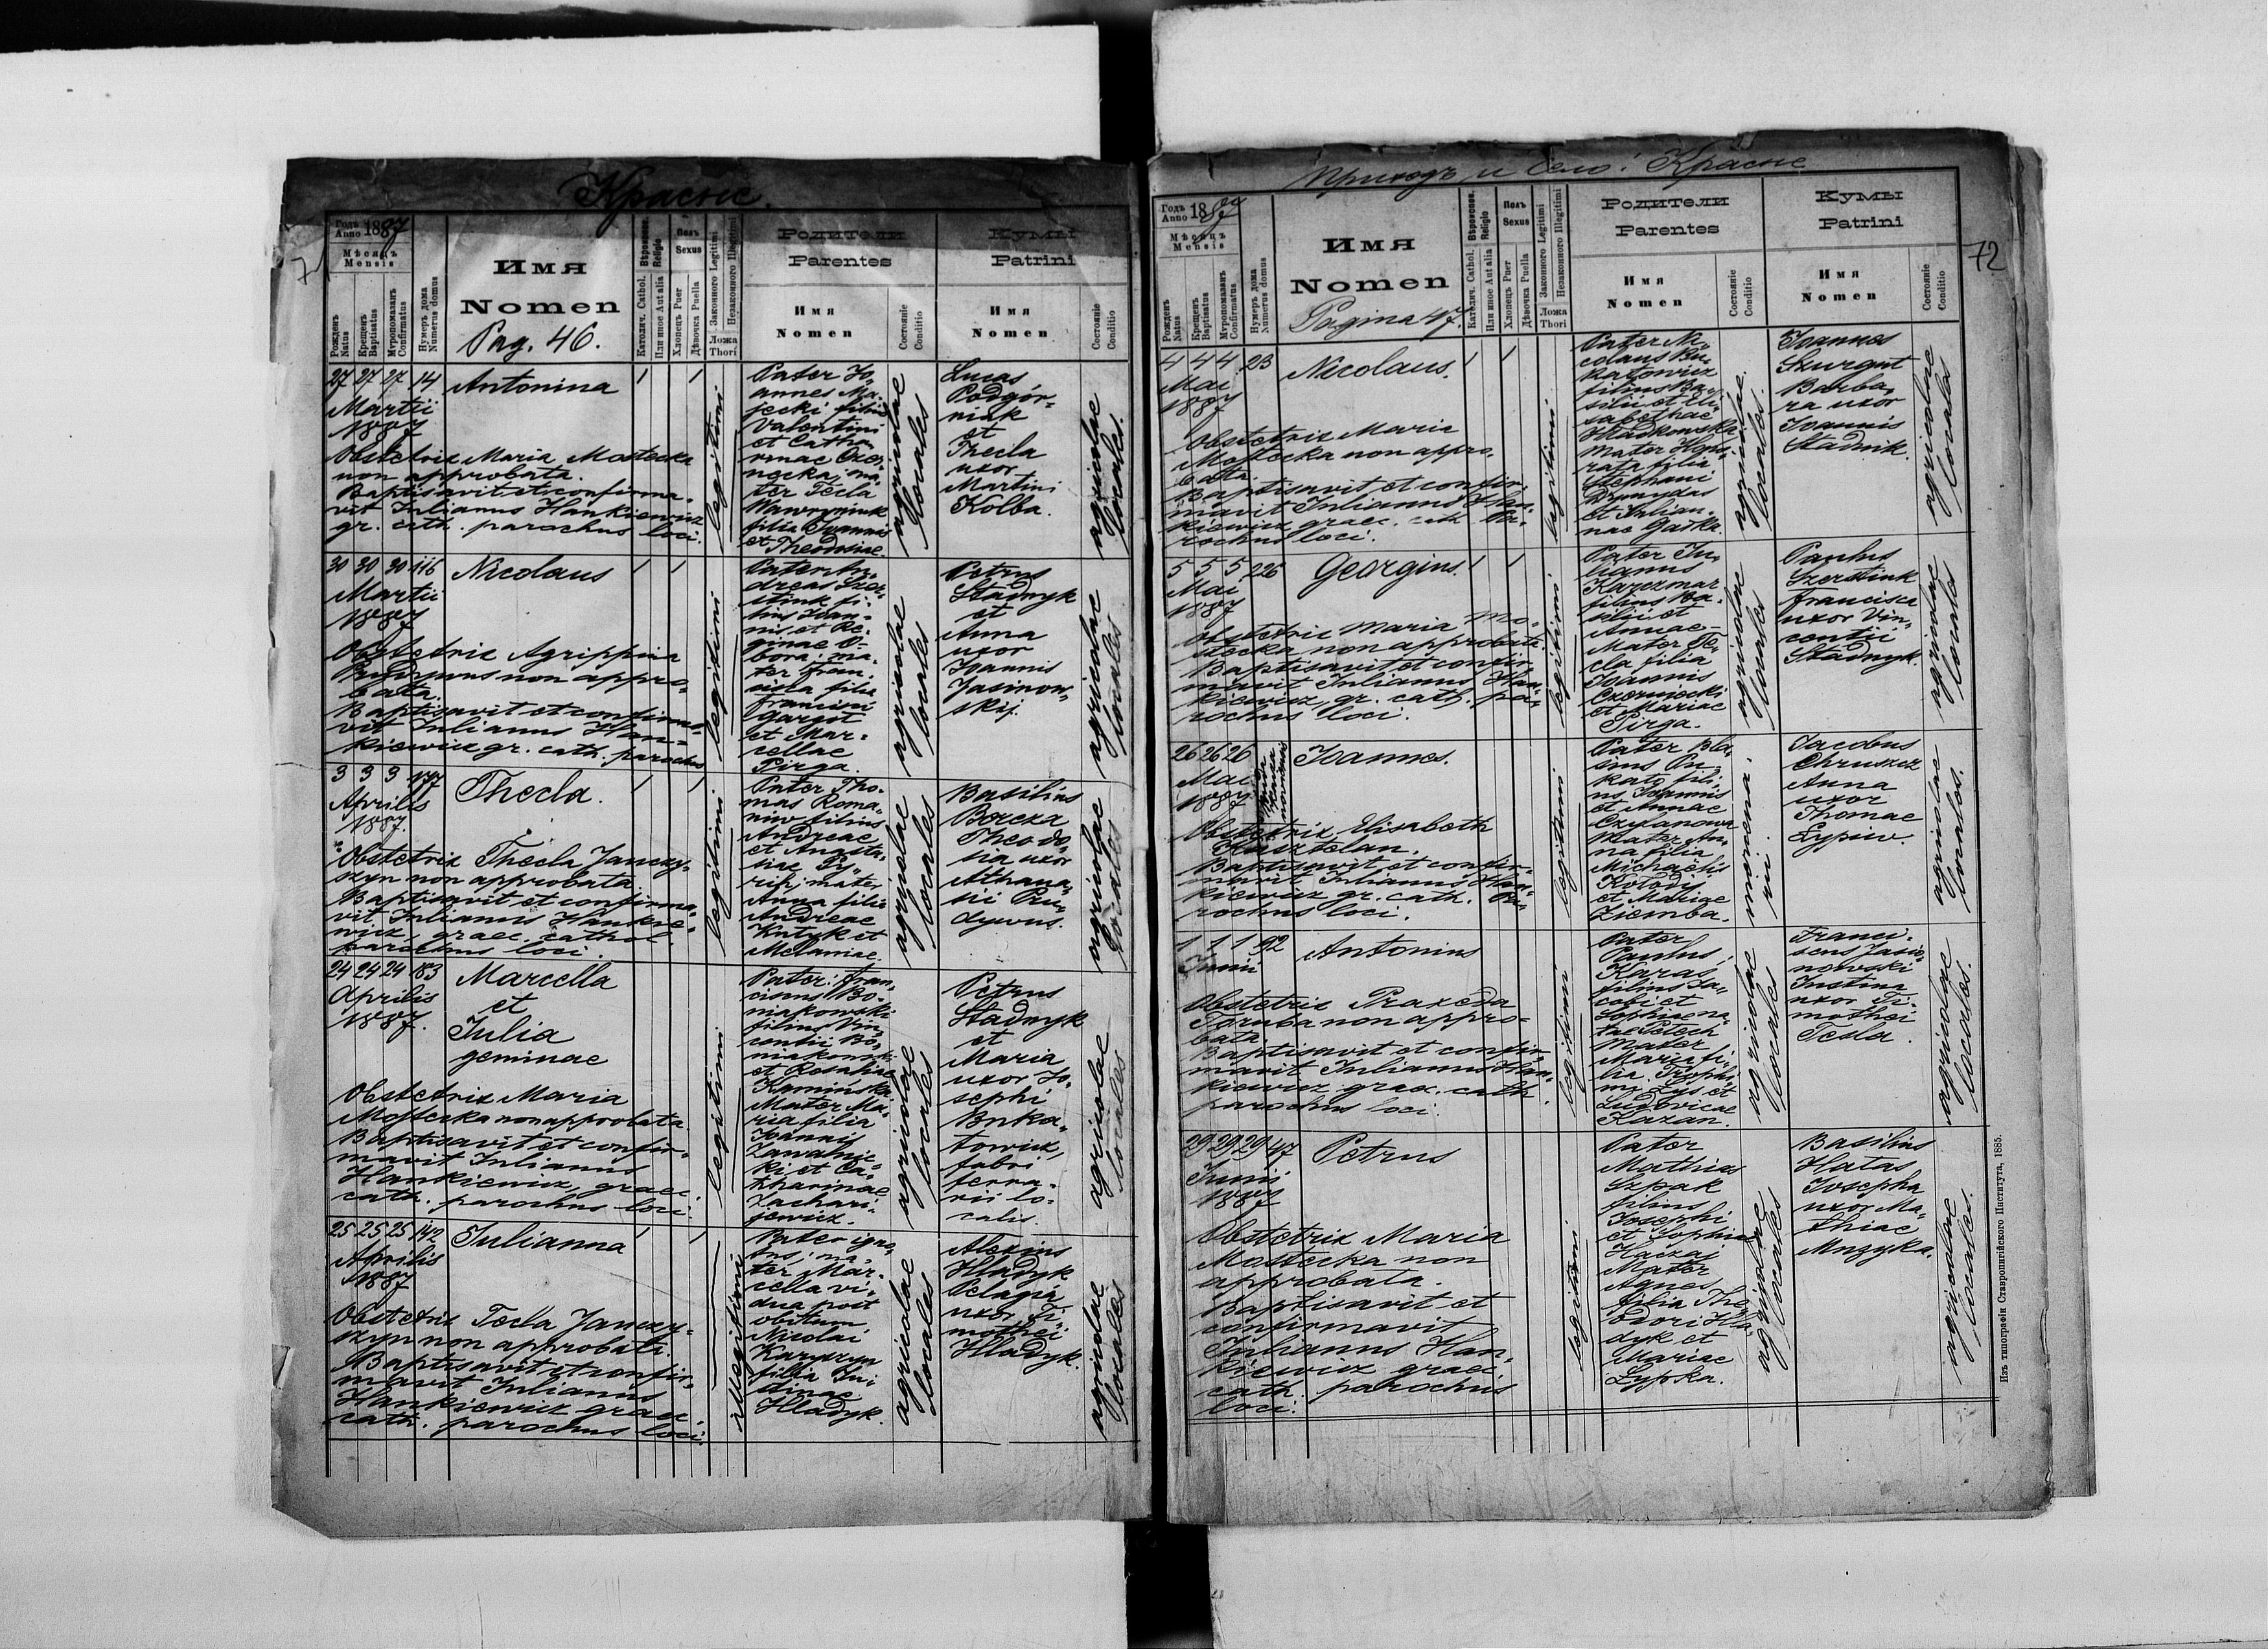 Красне.
71
Годъ Anno 1887
Мѣсяцъ
Mensis
Рожденъ Natus
Крещенъ Baptisatus
Мѵропомазанъ Confirmatus
Нумеръ дома Numerus domus
Имя
Nomen
Pag. 46.
Вѣроиспов. Religio
Католич. Cathol.
Или иное Aut alia
Полъ
Sexus
Хлопецъ Puer
Дѣвочка Puella
Законного Legitimi
Незаконного Illegitimi
Ложа
Thori
Родители
Parentes
Имя
Nomen
Состояніе
Conditio
Кумы
Patrini
Имя
Nomen
Состояніе
Conditio
27 27 27 14
Martii
1887
Antonina
1 1
Obstetrix Maria Mostecka
non approbata.
Baptisavit et confirma-
vit Julianus Hankiewicz
gr. cath. parochus loci.
legitimi
Pater Jo-
annes Ma-
jecki filius
Valentini
et Catha-
rinae
ma-
ter Tecla
Wawryniuk
filia Joannis
et Theodosiae
agricolae
locales
Lucas
Podgór-
niak
et
Thecla
uxor
Martini
Kolba.
agricolae
locales.
30 30 30 116
Martii
1887
Nicolaus
1 1
Obstetrix Agrippina
non appro-
bata.
Baptisavit et confirma-
vit Julianus Han-
kiewicz gr. cath. parochus
legitimi
Pater An-
dreas Szer-
stiuk fi-
lius Joan-
nis et Re-
ginae O-
bora; ma-
ter Fran-
cisca filia
Francisci
Gargot
et Mar-
cellae
Pirga.
agricolae
locales
Petrus
Stadnyk
et
Anna
uxor
Joannis
Jasinow-
skij.
agricolae
locales
3 3 3 177
Aprilis
1887.
Thecla.
1 1
Obstetrix Thecla Janczy-
szyn non approbata
Baptisavit et confirma-
vit Julianus Hankie-
wicz, graec. cathol.
parochus loci.
legitimi
Pater Tho-
mas Roma-
niw filius
Andreae
et Anasta-
siae
mater
Anna filia
Andreae
Kutyk et
Melaniae.
agricolae
locales
Basilius
Boreza
Theodo-
sia uxor
Athana-
sii
agricolae
locales
24 24 24 83
Aprilis
1887.
Marcella
et
Julia
geminae
Obstetrix Maria
Mostecka non approbata.
Baptisavit et confir-
mavit Julianus
Hankiewicz, graec.
cath. parochus loci.
legitimi
Pater: Fran-
ciscus Bo-
niakowski
filius Vin-
centii Bo-
niakowski
et Rosaliae
Kaminska.
Mater Ma-
ria filia
Joannis
Zawalnic-
ki et Ca-
tharinae
Zachari-
jewicz.
agricolae
locales
Petrus
Stadnyk
et
Maria
uxor Jo-
sephi
Buka-
towicz,
fabri
ferra-
rii lo-
calis.
agricolae
locales
25 25 25 142
Aprilis
1887
Julianna
1 1
Obstetrix Tecla Janczy-
szyn non approbata.
Baptisavit et confir-
mavit Julianus
Hankiewicz graec.
cath. parochus loci.
illegitimi
Pater igno-
tus; ma-
ter Mar-
cella vi-
dua post
obitum
Nicolai
filia Ju-
stinae
Hladyk.
agricolae
locales
Alexius
Hladyk
Pelagia
uxor Ti-
mothei
Hladyk.
agricolae
locales
Приходъ и Село: Красне
72
Годъ Anno 1887
Мѣсяцъ
Mensis
Рожденъ Natus
Крещенъ Baptisatus
Мѵропомазанъ Confirmatus
Нумеръ дома Numerus domus
Имя
Nomen
Pagina 47.
Вѣроиспов. Religio
Католич. Cathol.
Или иное Aut alia
Полъ
Sexus
Хлопецъ Puer
Дѣвочка Puella
Законного Legitimi
Незаконного Illegitimi
Ложа
Thori
Родители
Parentes
Имя
Nomen
Состояніе
Conditio
Кумы
Patrini
Имя
Nomen
Состояніе
Conditio
4 4 4 23
Mai
1887
Nicolaus.
1 1
Obstetrix Maria
Mostecka non appro-
bata.
Baptisavit et confir-
mavit Julianus Han-
kiewicz graec. cath. pa-
rochus loci.
legitimi
Pater Ni-
colaus Bu-
katowicz
filius Ba-
silii et Eli-
sabethae
Hladkowska
Mater Hono-
rata filia
Stephani
et Julian-
nae Gaska.
agricolae
locales.
Joannes
Szurgut
Barba-
ra uxor
Joannis
Stadnik.
agricolae
locales
5 5 5 226
Mai
1887
Georgius.
1 1
Obstetrix Maria Mo-
stecka non approbata.
Baptisavit et confir-
mavit Julianus Han-
kiewicz, gr. cath. pa-
rochus loci.
legitimi
Pater Ju-
lianus
Karczmar
filius Ba-
silii et
Annae-
Mater Te-
cla filia
Joannis
Czerniecki
et Mariae
Pirga.
agricolae
locales
Paulus
Szerstiuk
Francisca
uxor Vin-
centii
Stadnyk.
agricolae
locales
26 26 26
Mai
1887
Joannes.
Obstetrix Elisabeth
Kasztelan.
Baptisavit et confir-
mavit Julianus Han-
kiewicz gr. cath. pa-
rochus loci.
legitimi
Pater Bla-
sius
fili-
us Joannis
et Annae
Mater An-
na filia
Michaelis
Kolodij
et Mariae
Ziemba.
Jacobus
Chruszcz
Anna
uxor
Thomae
Lypiw.
agricolae
locales.
1 1 1 92
Junii
Antonius
Obstetrix Praxeda
Toruba non appro-
bata
Baptisavit et confir-
mavit Julianus Han-
kiewicz graec. cath.
parochus loci.
legitimi
Pater
Paulus
Karas
filius Ja-
cobi et
Sophiae na-
tae
Mater
Maria fi-
lia Trophi-
mi Lys et
Ludovicae
Kazan.
agricolae
locales
Franci-
scus Jasie-
nowski
Justina
uxor Ti-
mothei
Tesla.
agricolae
locales.
29 29 29 47
Junii
1887
Petrus
Obstetrix Maria
Mostecka non
approbata.
Baptisavit et
confirmavit
Julianus Han-
kiewicz graec.
cath. parochus
loci.
legitimi
Pater
Mathias
Szpak
filius
Josephi
et Sophiae
Haczaj
Mater
Agnes
filia The-
odori Hla-
dyk et
Mariae
Lypka.
agricolae
locales
Basilius
Hatas
Josepha
uxor Ma-
thiae
Muzyka.
agricolae
locales.
Изъ типографіи Ставропигійского Института, 1885.